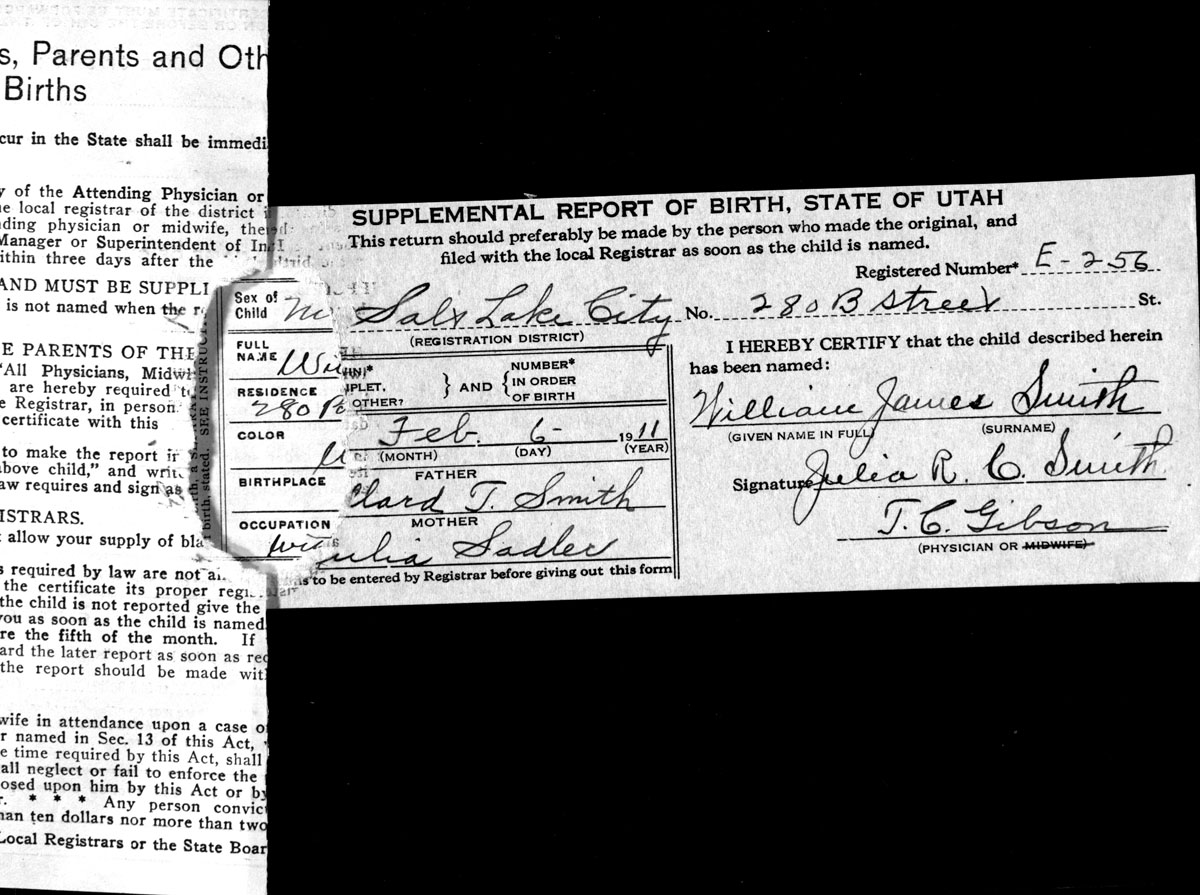 s, Parents and Oth
Births
cur in the State shall be immedi
y of the Attending Physician or
e local registrar of the district i
ding physician or midwife, the
Manager or Superintendent of In
ithin three days after the
AND MUST BE SUPPLI
is not named when the r
E PARENTS OF THE
"All Physicians, Midwi
are hereby required t
e Registrar, in person
certificate with this
to make the report ir
above child," and writ
aw requires and sign as
ISTRARS.
allow your supply of bla
s required by law are not a
the certificate its proper regi
the child is not reported give the
you as soon as the child is named
re the fifth of the month. If
ard the later report as soon as rec
the report should be made wit
wife in attendance upon a case o
r named in Sec. 13 of this Act,
e time required by this Act, shall
all neglect or fail to enforce the
osed upon him by this Act or by
r. * * * Any person convict
han ten dollars nor more than two
Local Registrars or the State Boar
birth, stated. SEE INSTRUC
SUPPLEMENTAL REPORT OF BIRTH, STATE OF UTAH
This return should preferably be made by the person who made the original, and
filed with the local Registrar as soon as the child is named.
Registered Number* E-256
Salt Lake City No. 280 B Street St.
(REGISTRATION DISTRICT)
Sex of
Child M
FULL
NAME Wi
RESIDENCE
280
COLOR
BIRTHPLACE
OCCUPATION
IPLET,
OTHER?
} AND {
NUMBER*
IN ORDER
OF BIRTH
Feb. 6- 1911
(MONTH) (DAY) (YEAR)
FATHER
llard T. Smith
MOTHER
ulia Sadler
to be entered by Registrar before giving out this form
I HEREBY CERTIFY that the child described herein
has been named:
William James Smith
(GIVEN NAME IN FULL) (SURNAME)
Signature Julia R. C. Smith
T. C. Gibson
(PHYSICIAN OR MIDWIFE)